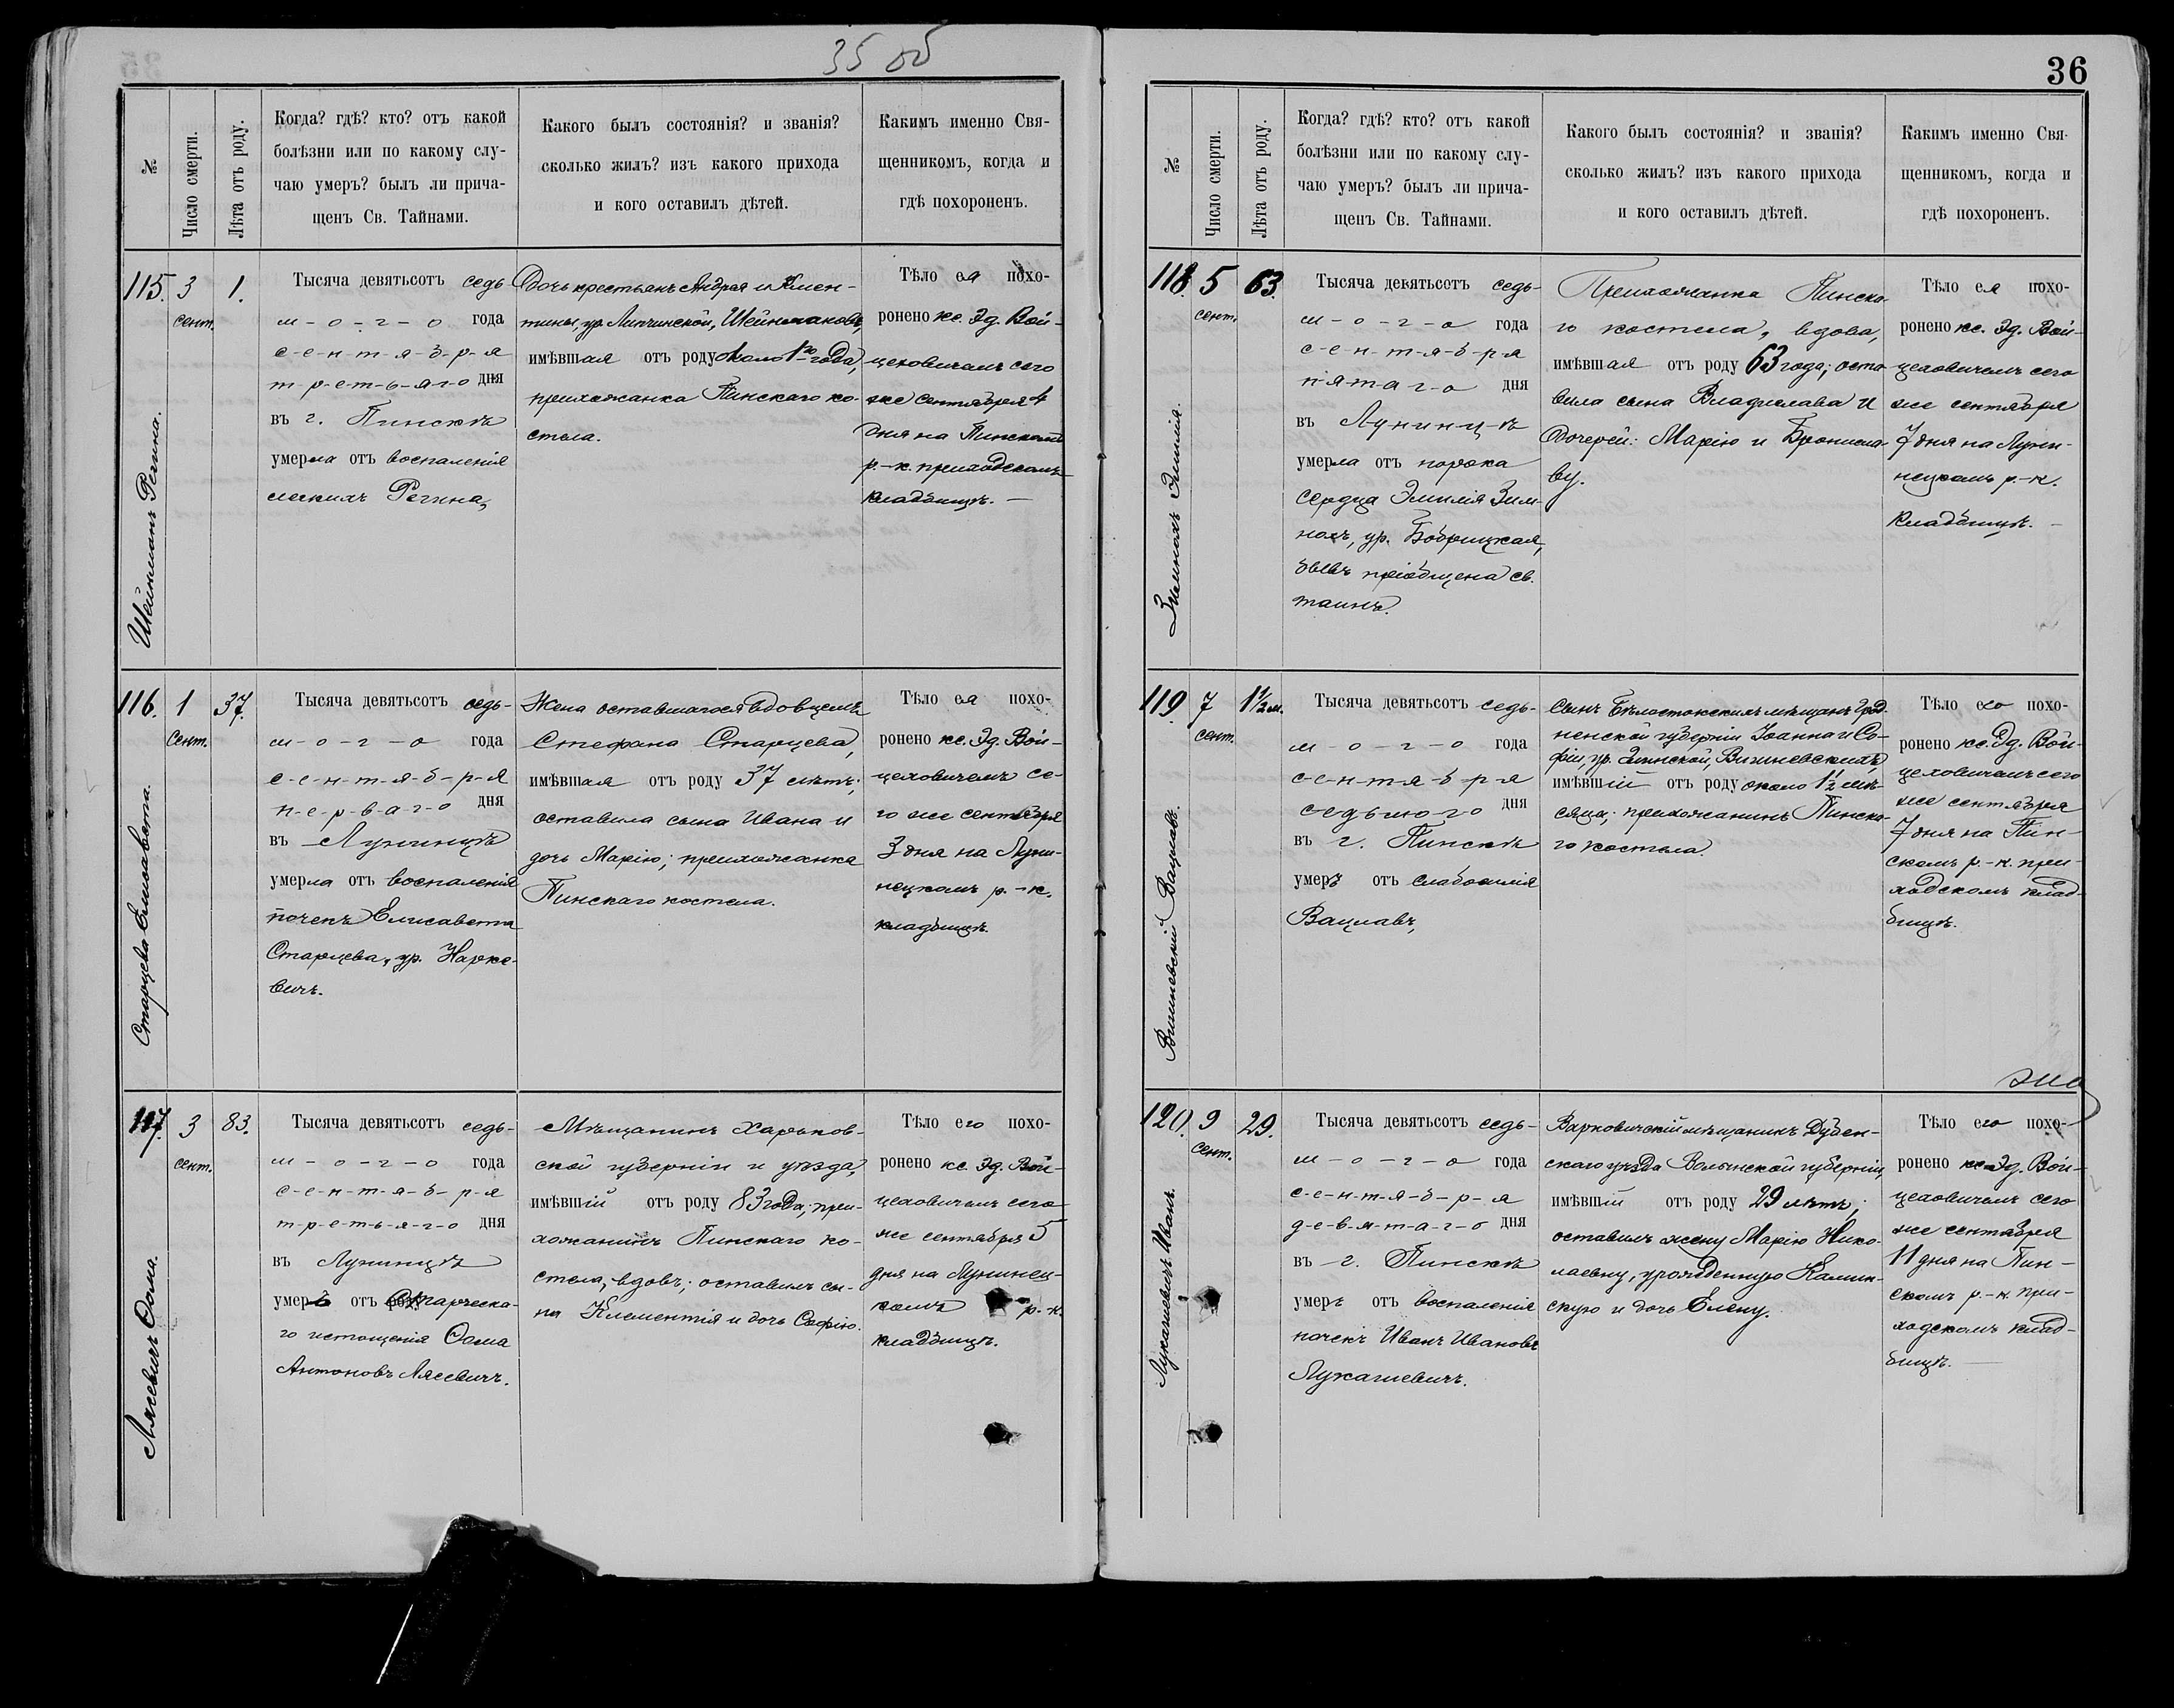 35 об
№
Число смерти.
Лѣта отъ роду.
Когда? гдѣ? кто? отъ какой
болѣзни или по какому слу-
чаю умеръ? былъ ли прича-
щенъ Св. Тайнами.
Какого былъ состоянія? и званія?
сколько жилъ? изъ какого прихода
и кого оставилъ дѣтей.
Какимъ именно Свя-
щенникомъ, когда и
гдѣ похороненъ.
115.
3
сент.
1.
Шейнманъ Регина.
Тысяча девятьсотъ седь
м-о-г-о года
с-е-н-т-я-б-р-я
т-р-е-т-ь-я-г-о дня
въ г. Пинскѣ
умерла отъ воспаленія
легкихъ Регина,
Дочь крестьянъ Андрея и Клемен-
тины, ур. Липчинской, Шейнмановъ,
имѣвшая отъ роду около 1го года,
прихожанка Пинскаго ко-
стела.
Тѣло ея похо-
ронено кс. Эд. Вой-
цеховичемъ сего
же сентября 4
дня на Пинскомъ
р.-к. приходскомъ
кладбищѣ. —
116.
1
сент.
37.
Старцева Елисавета.
Тысяча девятьсотъ седь-
м-о-г-о года
с-е-н-т-я-б-р-я
п-е-р-в-а-г-о дня
въ Лунинцѣ
умерла отъ воспаленія
почекъ Елисавета
Старцева, ур. Нарке-
вичъ.
Жена оставшагося вдовцемъ
Стефана Старцева,
имѣвшая отъ роду 37 лѣтъ;
оставила сына Ивана и
дочь Марію; прихожанка
Пинскаго костела.
Тѣло ея похо-
ронено кс. Эд. Вой-
цеховичемъ се-
го же сентября
3 дня на Луни-
нецкомъ р.-к.
кладбищѣ.
117.
3
сент.
83.
Лясевичъ Ѳома.
Тысяча девятьсотъ седь-
м-о-г-о года
с-е-н-т-я-б-р-я
т-р-е-т-ь-я-г-о дня
въ Лунинцѣ
умеръ отъ старческа-
го истощенія Ѳома
Антоновъ Лясевичъ.
Мѣщанинъ Харьков-
ской губерніи и уѣзда,
имѣвшій отъ роду 83 года; при-
хожанинъ Пинскаго ко-
стела, вдовъ; оставилъ сы-
на Клементія и дочь Софію.
Тѣло его похо-
ронено кс. Эд. Вой-
цеховичемъ сего
же сентября 5
дня на Лунинец-
комъ р.-к.
кладбищѣ.
36
№
Число смерти.
Лѣта отъ роду.
Когда? гдѣ? кто? отъ какой
болѣзни или по какому слу-
чаю умеръ? былъ ли прича-
щенъ Св. Тайнами.
Какого былъ состоянія? и званія?
сколько жилъ? изъ какого прихода
и кого оставилъ дѣтей.
Какимъ именно Свя-
щенникомъ, когда и
гдѣ похороненъ.
118.
5
сент.
63.
Зимнохъ Эмилія.
Тысяча девятьсотъ седь-
м-о-г-о года
с-е-н-т-я-б-р-я
п-я-т-а-г-о дня
въ Лунинцѣ
умерла отъ порока
сердца Эмилія Зим-
нохъ, ур. Бобрицкая,
бывъ пріобщена св.
таинъ.
Прихожанка Пинска-
го костела, вдова,
имѣвшая отъ роду 63 года; оста
вила сына Владислава и
дочерей: Марію и Бронисла-
ву.
Тѣло ея похо-
ронено кс. Эд. Вой-
цеховичемъ сего
же сентября
7 дня на Луни-
нецкомъ р.-к.
кладбищѣ. —
119.
7
сент.
1½ м.
Вишневскій Вацлавъ.
Тысяча девятьсотъ седь-
м-о-г-о года
с-е-н-т-я-б-р-я
седьмого дня
въ г. Пинскѣ
умеръ отъ слабосилія
Вацлавъ,
Сынъ Бѣлостокскихъ мѣщанъ Грод-
ненской губерніи Іоанна и Со-
фіи, ур. Вишневскихъ,
имѣвшій отъ роду около 1½ мѣ-
сяца; прихожанинъ Пинска-
го костела.
Тѣло его похо-
ронено кс. Эд. Вой-
цеховичемъ сего
же сентября
7 дня на Пин-
скомъ р.-к. при-
ходскомъ клад-
бищѣ.
120.
9
сент.
29.
Лукашевичъ Иванъ.
Тысяча девятьсотъ седь-
м-о-г-о года
с-е-н-т-я-б-р-я
д-е-в-я-т-а-г-о дня
въ г. Пинскѣ
умеръ отъ воспаленія
почекъ Иванъ Ивановъ
Лукашевичъ.
Варковичскій мѣщанинъ Дубен-
скаго уѣзда Волынской губерніи,
имѣвшій отъ роду 29 лѣтъ;
оставилъ жену Марію Нико-
лаевну, урожденную Калин-
скую и дочь Елену.
Тѣло его похо-
ронено кс. Эд. Вой-
цеховичемъ сего
же сентября
11 дня на Пин-
скомъ р.-к. при-
ходскомъ клад-
бищѣ. —